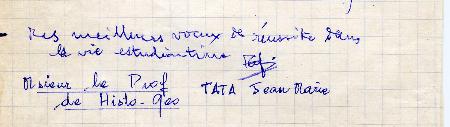 Mes meilleurs voeux de réussite dans
la vie estudiantine
Msieur le Prof
de Histo-Géo TATA Jean Marie